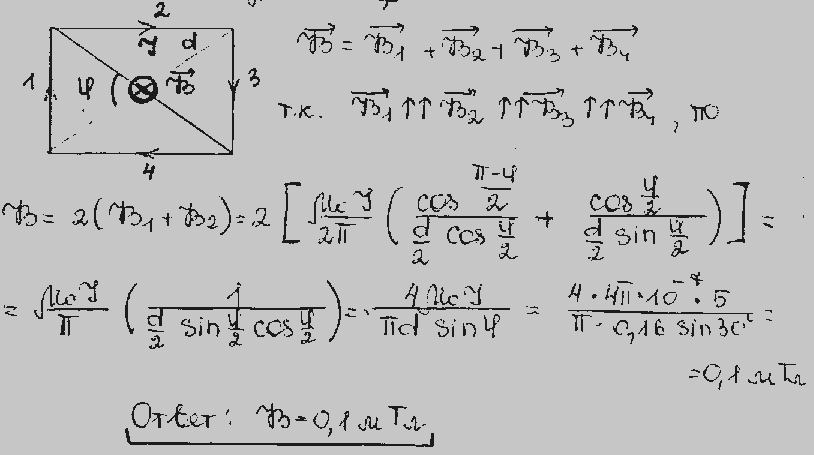 2
I d
1 φ B⃗ 3
4
B⃗ = B⃗₁ + B⃗₂ + B⃗₃ + B⃗₄
т.к. B⃗₁ ↑↑ B⃗₂ ↑↑ B⃗₃ ↑↑ B⃗₄, то
B = 2(B₁ + B₂) = 2 [ μ₀I/2π ( cos((π-φ)/2) / (d/2 cos(φ/2)) + cos(φ/2) / (d/2 sin(φ/2)) ) ] =
= μ₀I/π ( 1 / (d/2 sin(φ/2) cos(φ/2)) ) = 4μ₀I / (πd sinφ) = 4·4π·10⁻⁷·5 / (π·0,16 sin30°) =
= 0,1 мТл
Ответ: B = 0,1 мТл